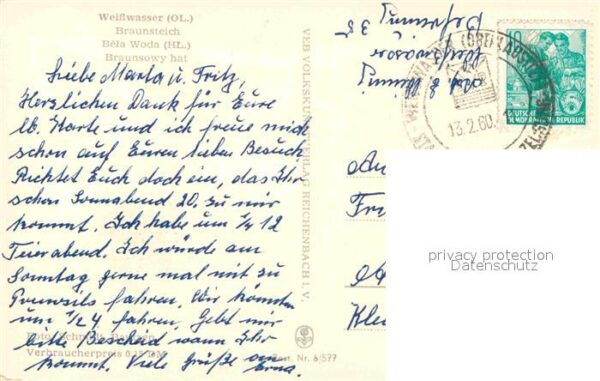 Weißwasser (OL.)
Braunsteich
Běła Woda (HL.)
Braunsowy hat
Liebe Marta u. Fritz,
Herzlichen Dank für Eure
lb. Karte und ich freue mich
schon auf Euren lieben Besuch
Richtet Euch doch ein, das Ihr
schon Sonnabend 20. zu mir
kommt. Ich habe um 1/2 12
Feierabend. Ich würde am
Sonntag gerne mal mit zu
fahren. Wir könnten
um 1/2 4 fahren. Gebt mir
bitte Bescheid wann Ihr
kommt. Viele Grüße
Erna.
Verbraucherpreis 0,15 DM
Best. Nr. 6/577
VEB VOLKSKUNSTVERLAG REICHENBACH I. V.
Weißwasser
13.2.60
10
DEUTSCHE
DEMOKRATISCHE REPUBLIK
An
Fr
Kle
privacy protection
Datenschutz